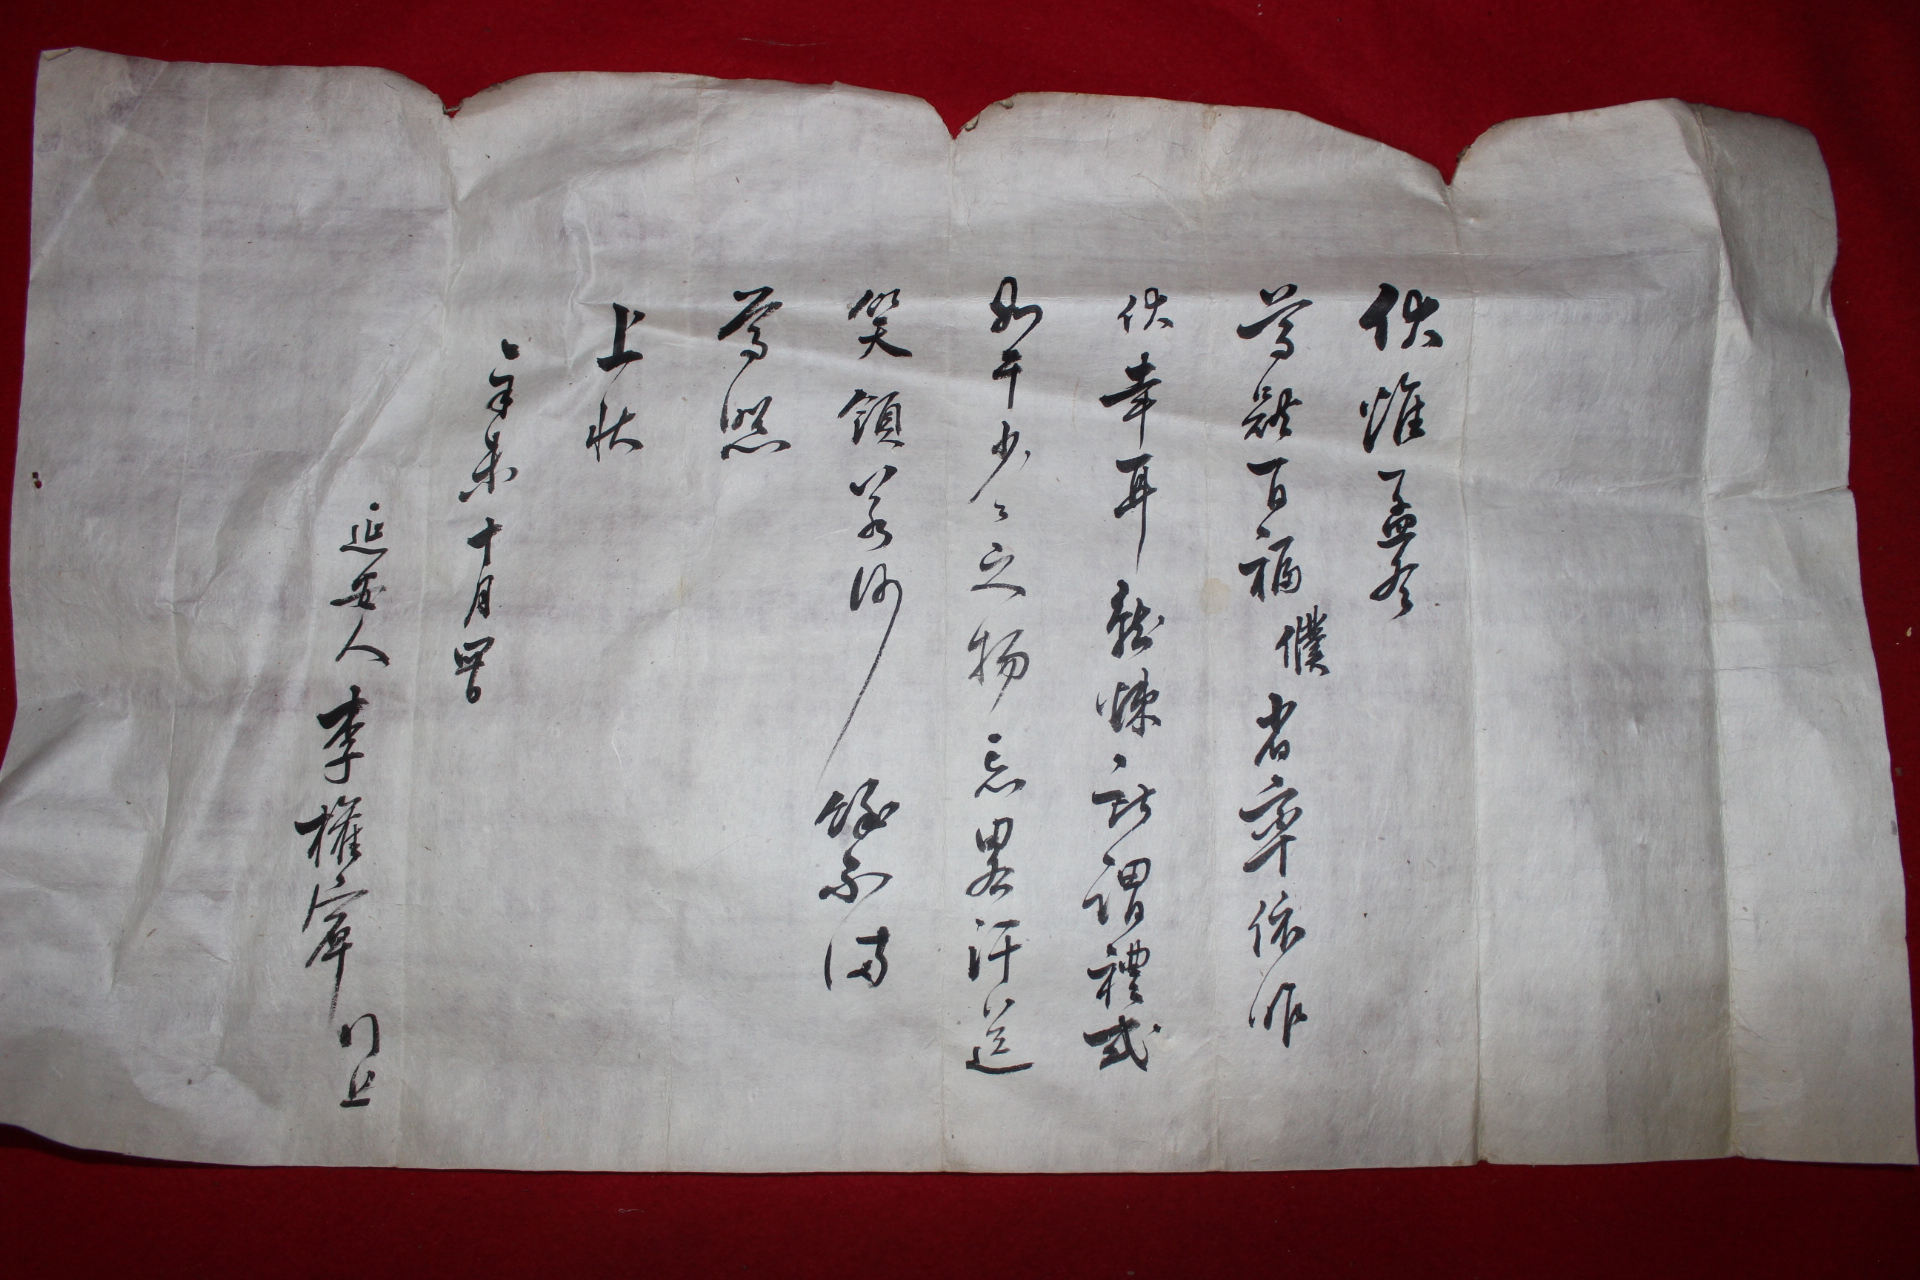 伏惟孟冬
尊體百福僕省率依昨
伏幸耳就悚所謂禮式
如干少々之物忘畧汗送
笑領若何餘不備
尊照
上狀
辛未十月四日
延安人李權宰